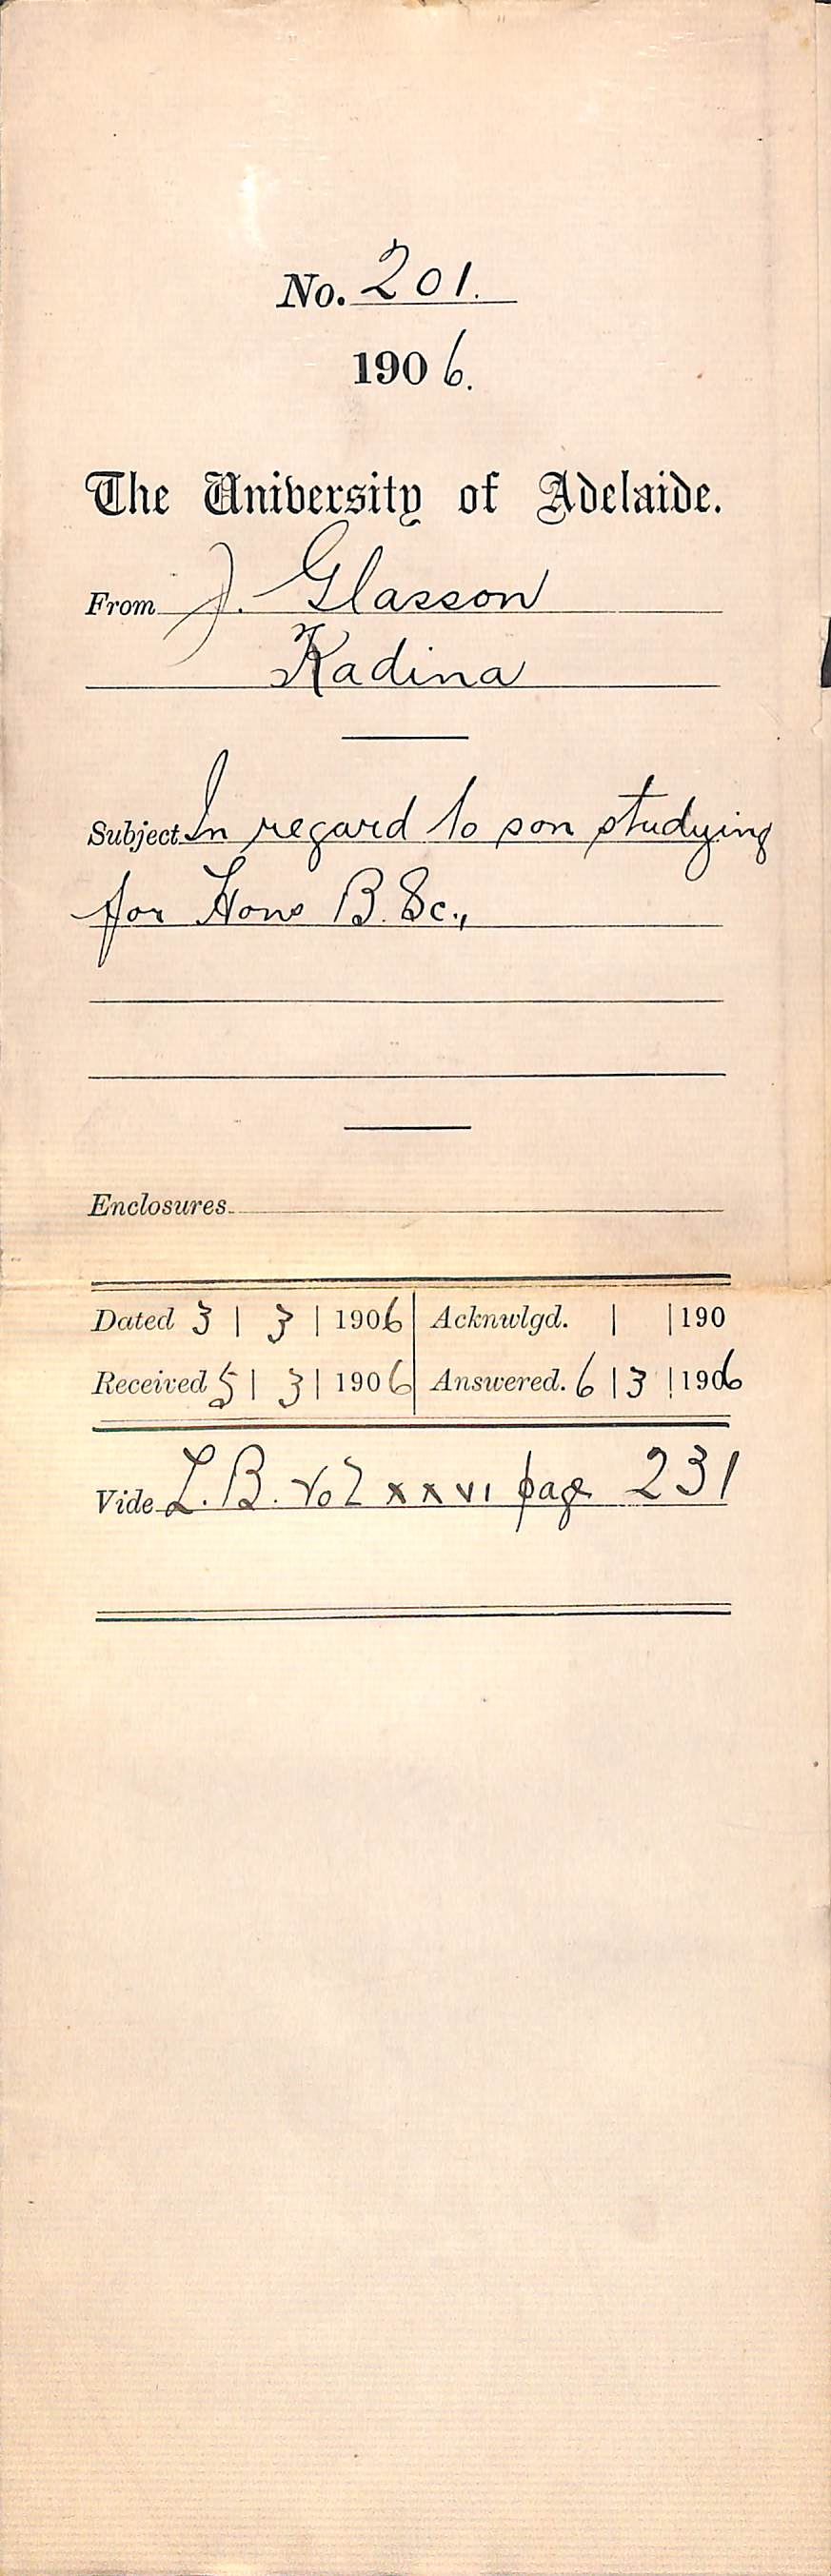 No. 201.
1906.
The University of Adelaide.
From J. Glasson
Kadina
Subject In regard to son studying
for Hons B.Sc.,
Enclosures
Dated 3 | 3 | 1906 | Acknwlgd. | | 190
Received 5 | 3 | 1906 | Answered. 6 | 3 | 1906
Vide L.B. Vol xxvi page 231